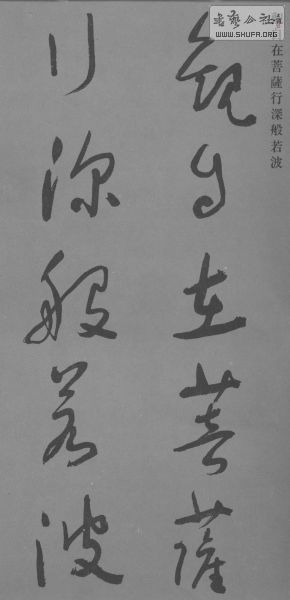 觀自在菩薩
行深般若波
在菩薩行深般若波
書藝公社
WWW.SHUFA.ORG